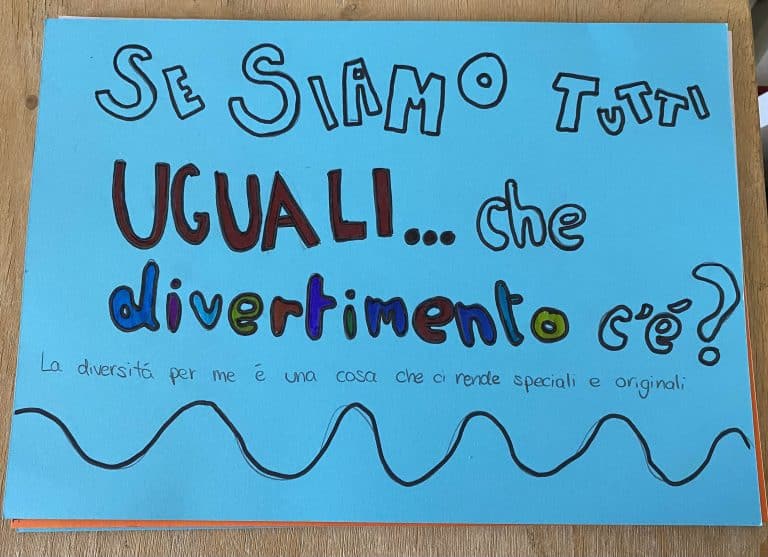 SE SIAMO TUTTI
UGUALI... che
divertimento c'é?
La diversitá per me é una cosa che ci rende speciali e originali